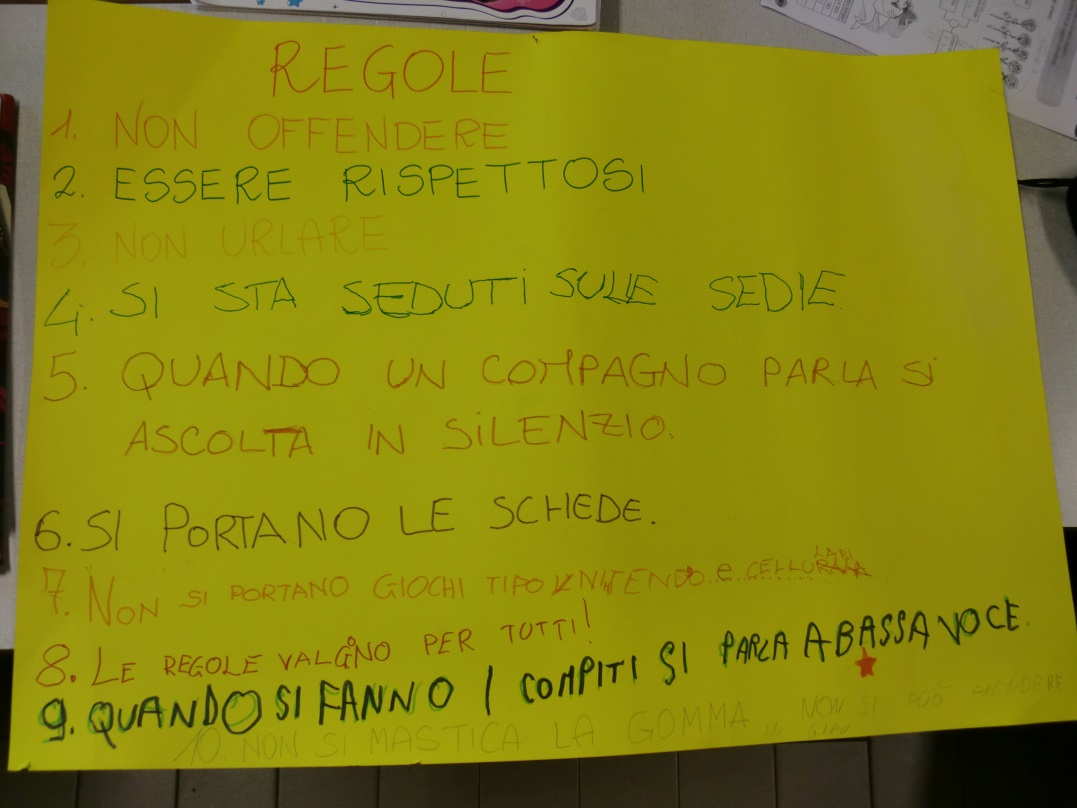 REGOLE
1. NON OFFENDERE
2. ESSERE RISPETTOSI
3. NON URLARE
4. SI STA SEDUTI SULLE SEDIE
5. QUANDO UN COMPAGNO PARLA Si
ASCOLTA IN SiLENZIO.
6. SI PORTANO LE SCHEDE.
7. NON SI PORTANO GIOCHI TIPO NITENDO e CELLULARI
8. LE REGOLE VALGONO PER TUTTI!
9. QUANDO SI FANNO I COMPITI SI PARLA A BASSA VOCE.
10. NON SI MASTICA LA GOMMA NON SI PUÒ